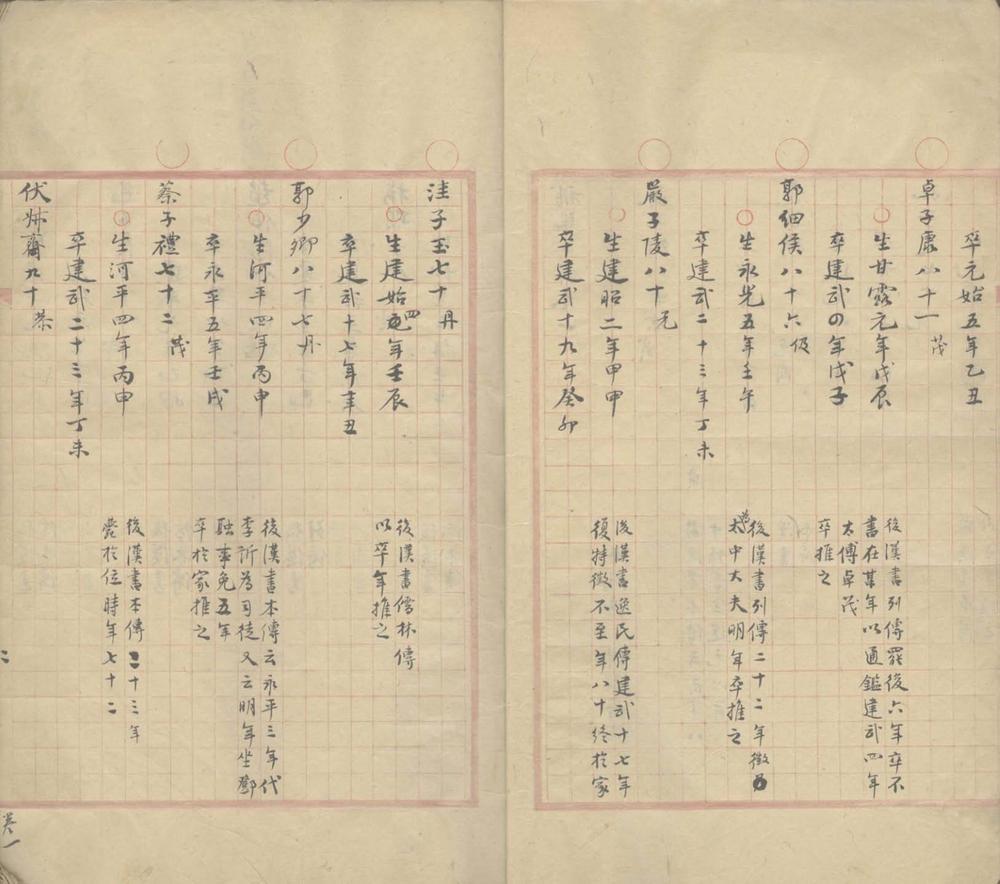 卒元始五年乙丑
卓子康八十一茂
生甘露元年戊辰
卒建武四年戊子
後漢書列傳罷後六年卒不
書在某年以通鑑建武四年
太傅卓茂
卒推之
郭細侯八十六伋
生永光五年壬午
卒建武二十三年丁未
後漢書列傳二十二年徵為
太中大夫明年卒推之
嚴子陵八十光
生建昭二年甲申
卒建武十九年癸卯
後漢書逸民傳建武十七年
復特徵不至年八十終於家
洼子玉七十丹
生建始四年壬辰
卒建武十七年辛丑
後漢書儒林傳
以卒年推之
郭少卿八十七丹
生河平四年丙申
卒永平五年壬戌
後漢書本傳云永平三年代
李訢為司徒又云明年坐鄧
融事免五年
卒於家推之
蔡子禮七十二茂
生河平四年丙申
卒建武二十三年丁未
後漢書本傳二十三年
薨於位時年七十二
伏叔齋九十恭
卷一
二